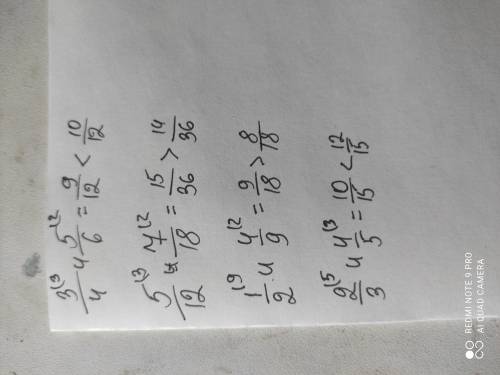 3⁽³/4 и 5⁽²/6 = 9/12 < 10/12
5⁽³/12 и 7⁽²/18 = 15/36 > 14/36
1⁽⁹/2 и 4⁽²/9 = 9/18 > 8/18
2⁽⁵/3 и 4⁽³/5 = 10/15 < 12/15
REDMI NOTE 9 PRO
AI QUAD CAMERA